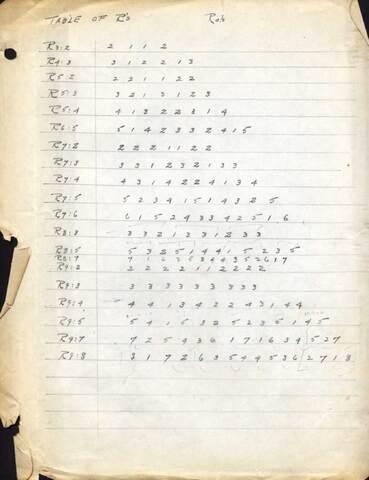 TABLE OF R's Ro's
R3:2 2 1 1 2
R4:3 3 1 2 2 1 3
R5:2 2 2 1 1 2 2
R5:3 3 2 1 3 1 2 3
R5:4 4 1 3 2 2 3 1 4
R6:5 5 1 4 2 3 3 2 4 1 5
R7:2 2 2 2 1 1 2 2
R7:3 3 3 1 2 3 2 1 3 3
R7:4 4 3 1 4 2 2 4 1 3 4
R7:5 5 2 3 4 1 5 1 4 3 2 5
R7:6 6 1 5 2 4 3 3 4 2 5 1 6
R8:3 3 3 2 1 3 3 1 2 3 3
R8:5 5 3 2 5 1 4 4 1 5 2 3 5
R8:7 7 1 6 2 5 3 4 4 3 5 2 6 1 7
R9:2 2 2 2 2 1 1 2 2 2 2
R9:3 3 3 3 3 3 3 3 3 3
R9:4 4 4 1 3 4 2 2 4 3 1 4 4
R9:5 5 4 1 5 3 2 5 2 3 5 1 4 5
R9:7 7 2 5 4 3 6 1 7 1 6 3 4 5 2 7
R9:8 8 1 7 2 6 3 5 4 4 5 3 6 2 7 1 8